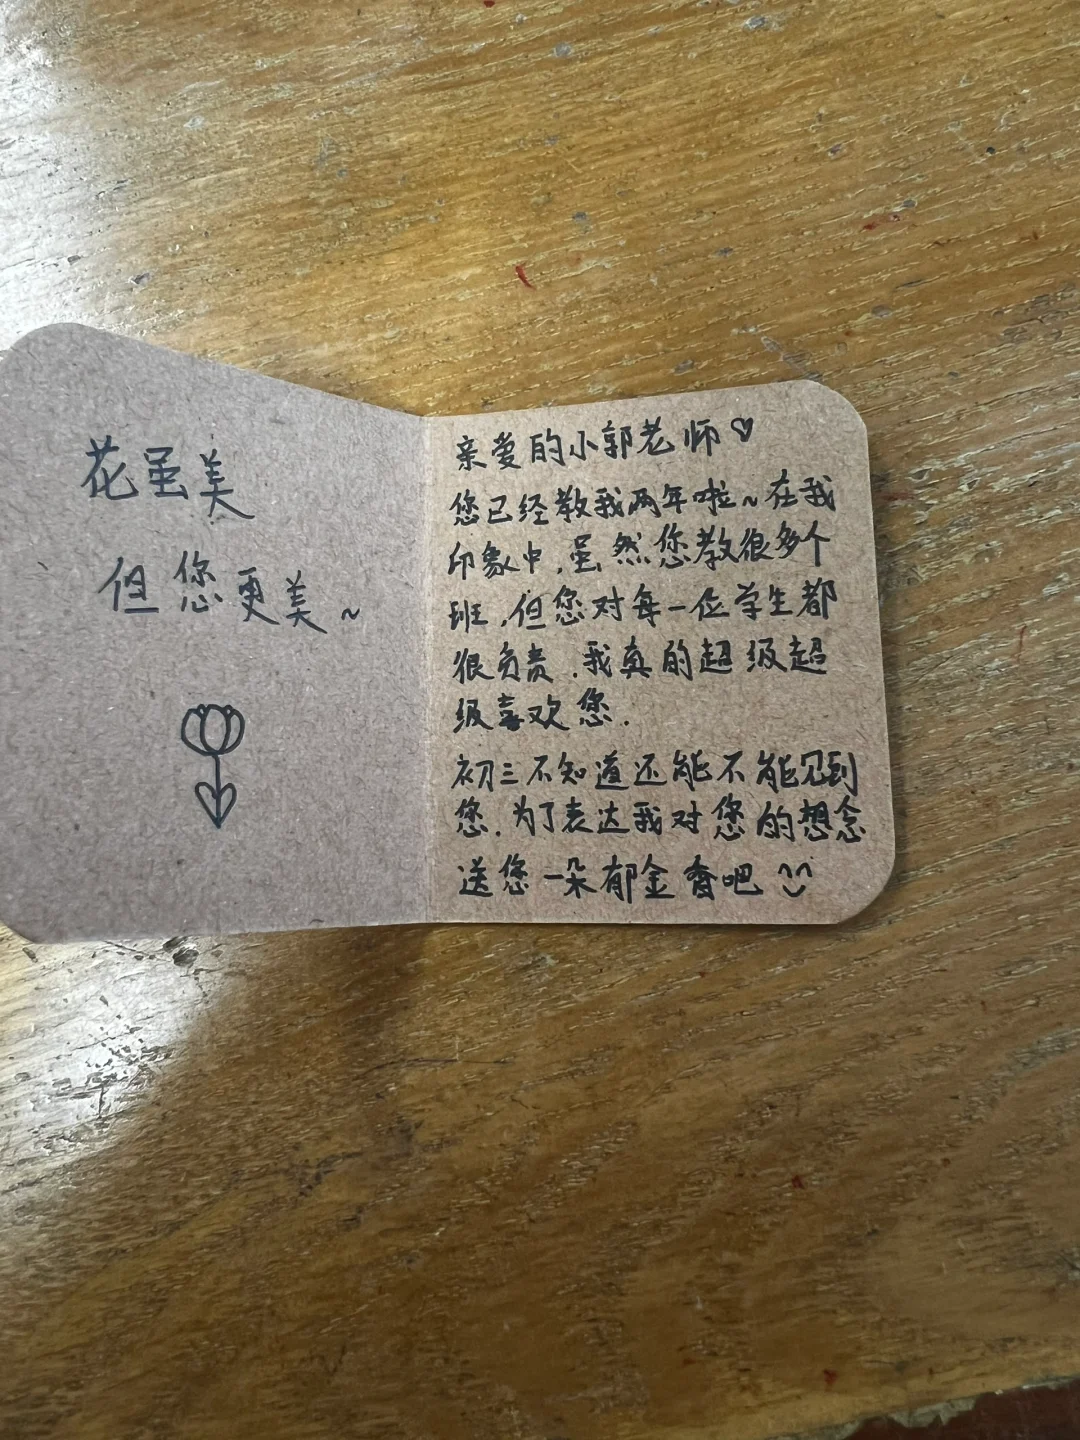 花虽美
但您更美~
亲爱的小郭老师♡
您已经教我两年啦~在我
印象中,虽然您教很多个
班,但您对每一位学生都
很负责.我真的超级超
级喜欢您.
初三不知道还能不能见到
您.为了表达我对您的想念
送您一朵郁金香吧